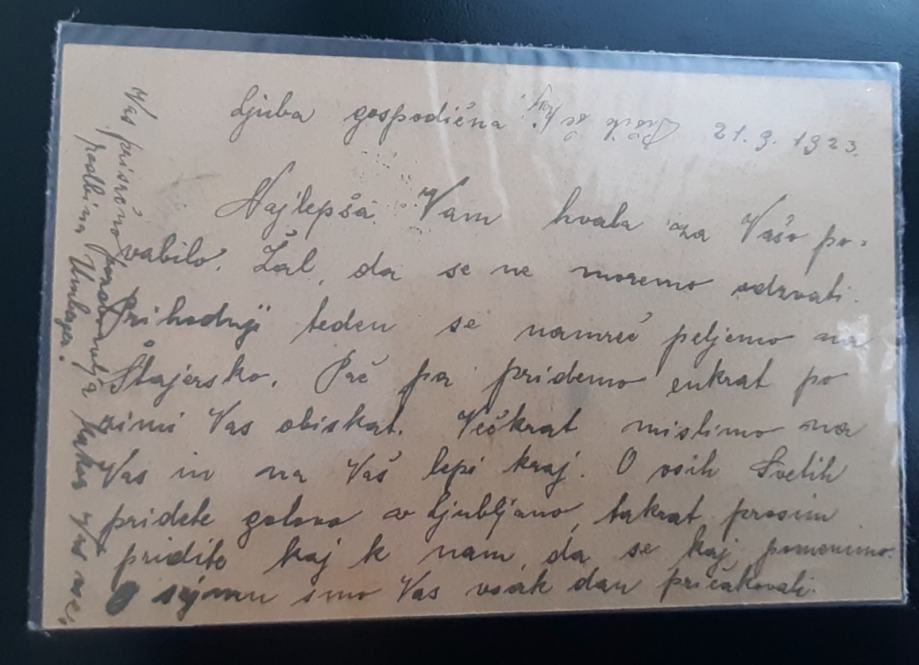 Ljuba gospodična! 21. 9. 1923.
Najlepša Vam hvala za Vašo po-
vabilo. Žal, da se ne moremo odzvati.
Prihodnji teden se namreč peljemo na
Štajersko. Pač pa pridemo enkrat po
zimi Vas obiskat. Večkrat mislimo na
Vas in na Vaš lepi kraj. O vsih Svetih
pridete gotovo v Ljubljano, takrat prosim
pridite kaj k nam, da se kaj pomenimo.
O sejmu smo Vas vsak dan pričakovali.
Vas prisrčno pozdravlja kakor vse
rodbina